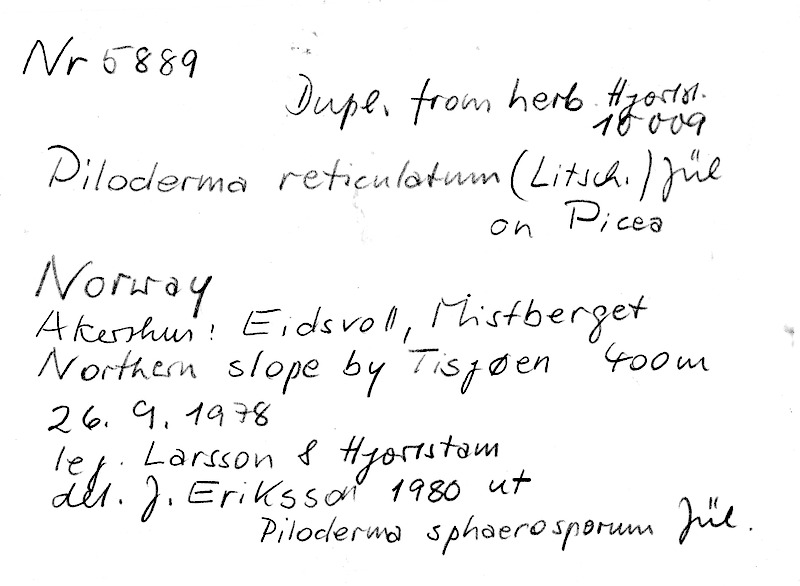 Nr 5889
Dupl. from herb Hjortst.
10 009
Piloderma reticulatum (Litsch.) Jül
on Picea
Norway
Akershus: Eidsvoll, Mistberget
Northern slope by Tisjøen 400 m
26. 9. 1978
leg. Larsson & Hjortstam
det. J. Eriksson 1980 ut
Piloderma sphaerosporum Jül.